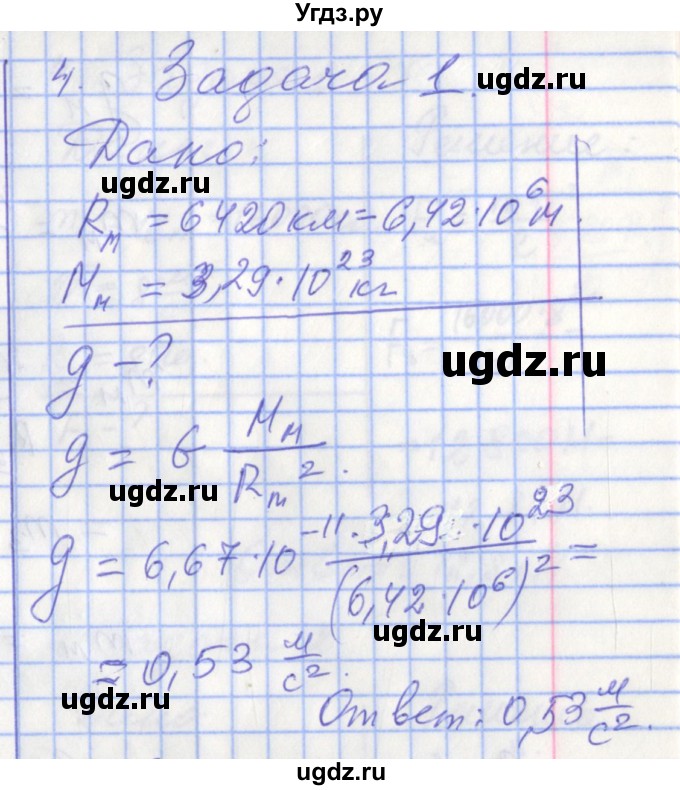 Угдз.ру
4. Задача 1.
ugdz.ru
Дано:
ugdz.ru
Rм = 6420 км = 6,42·10⁶ м.
Mм = 3,29·10²³ кг
ugdz.ru
g – ?
g = G Mм / Rм².
ugdz.ru
g = 6,67·10⁻¹¹ · 3,29 · 10²³ / (6,42·10⁶)² =
ugdz.ru
= 0,53 м/с².
ugdz.ru
Ответ: 0,53 м/с².
ugdz.ru